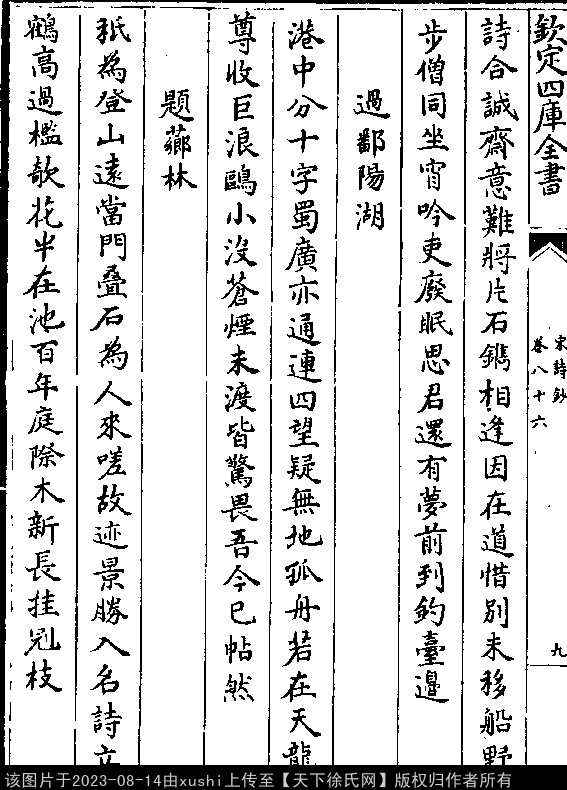 欽定四庫全書
宋詩鈔
卷八十六
九
詩合誠齋意難將片石鐫相逢因在道惜別未移船野
步僧同坐宵吟吏廢眠思君還有夢前到釣臺邊
過鄱陽湖
港中分十字蜀廣亦通連四望疑無地孤舟若在天龍
尊收巨浪鷗小沒蒼煙未渡皆驚畏吾今已帖然
題薌林
秖為登山遠當門疊石為人來嗟故迹景勝入名詩立
鶴高過檻欹花半在池百年庭除木新長挂冠枝
该图片于2023-08-14由xushi上传至【天下徐氏网】版权归作者所有